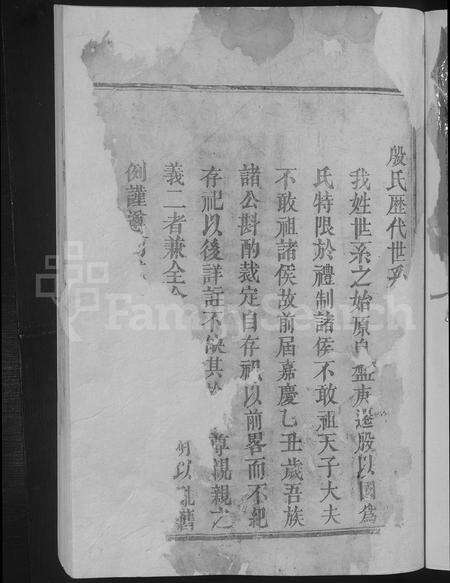 殷氏歷代世系
我姓世系之始原自盤庚遷殷以國爲
氏特限於禮制諸侯不敢祖天子大夫
不敢祖諸侯故前屆嘉慶乙丑歲吾族
諸公斟酌裁定自存祀以前畧而不紀
存祀以後詳註不缺其 尊視親之
義二者兼全 例以
例謹遵
FamilySearch